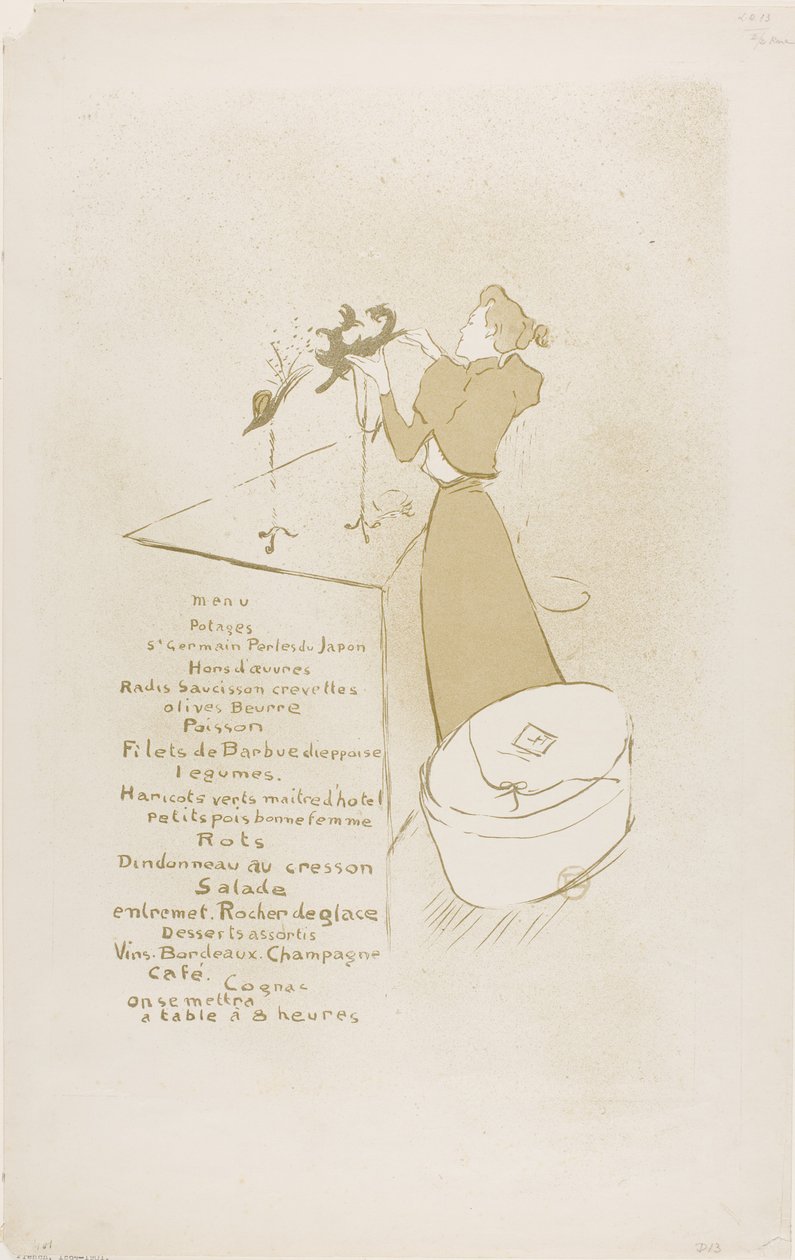 menu
Potages
St Germain Perles du Japon
Hors d'œuvres
Radis Saucisson crevettes
olives Beurre
Poisson
Filets de Barbue dieppoise
legumes.
Haricots verts maitre d'hotel
petits pois bonne femme
Rots
Dindonneau au cresson
Salade
entremet. Rocher de glace
Desserts assortis
Vins. Bordeaux. Champagne
Café.
Cognac
on se mettra
a table à 8 heures
D13